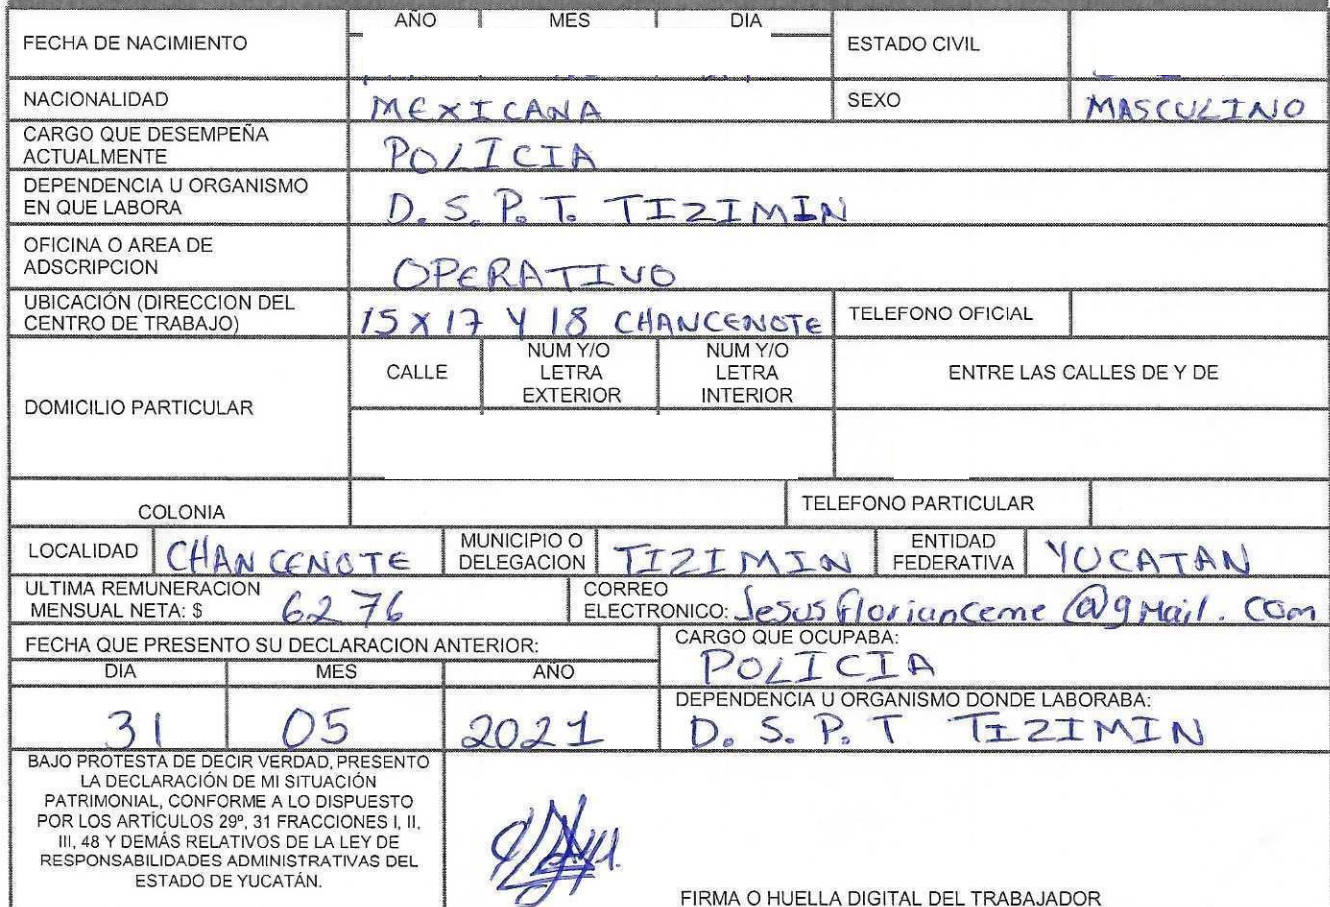 AÑO MES DIA
FECHA DE NACIMIENTO ESTADO CIVIL
NACIONALIDAD MEXICANA SEXO MASCULINO
CARGO QUE DESEMPEÑA
ACTUALMENTE POLICIA
DEPENDENCIA U ORGANISMO
EN QUE LABORA D. S. P. T. TIZIMIN
OFICINA O AREA DE
ADSCRIPCION OPERATIVO
UBICACIÓN (DIRECCION DEL
CENTRO DE TRABAJO) 15 X 17 Y 18 CHANCENOTE TELEFONO OFICIAL
DOMICILIO PARTICULAR
CALLE
NUM Y/O
LETRA
EXTERIOR
NUM Y/O
LETRA
INTERIOR
ENTRE LAS CALLES DE Y DE
COLONIA TELEFONO PARTICULAR
LOCALIDAD CHANCENOTE MUNICIPIO O
DELEGACION TIZIMIN ENTIDAD
FEDERATIVA YUCATAN
ULTIMA REMUNERACION
MENSUAL NETA: $ 6276
CORREO
ELECTRONICO: Jesusflorianceme@gmail.com
FECHA QUE PRESENTO SU DECLARACION ANTERIOR:
DIA MES AÑO
31 05 2021
CARGO QUE OCUPABA:
POLICIA
DEPENDENCIA U ORGANISMO DONDE LABORABA:
D. S. P. T TIZIMIN
BAJO PROTESTA DE DECIR VERDAD, PRESENTO
LA DECLARACIÓN DE MI SITUACIÓN
PATRIMONIAL, CONFORME A LO DISPUESTO
POR LOS ARTÍCULOS 29º, 31 FRACCIONES I, II,
III, 48 Y DEMÁS RELATIVOS DE LA LEY DE
RESPONSABILIDADES ADMINISTRATIVAS DEL
ESTADO DE YUCATÁN.
FIRMA O HUELLA DIGITAL DEL TRABAJADOR